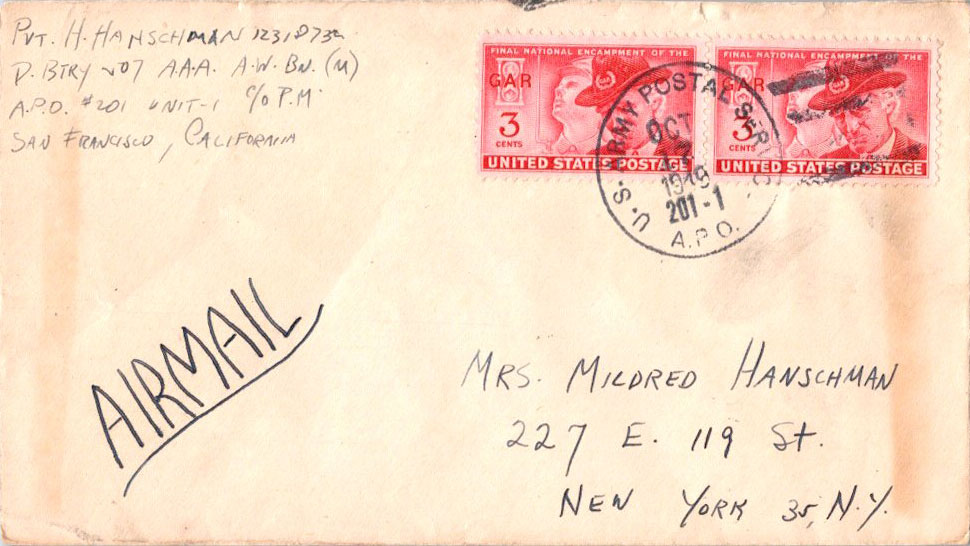 PVT. H. HANSCHMAN 12318732
D. BTRY 507 A.A.A. A.W. BN. (M)
A.P.O. #201 UNIT-1 C/O P.M.
SAN FRANCISCO, CALIFORNIA
FINAL NATIONAL ENCAMPMENT OF THE
GAR
3
CENTS
UNITED STATES POSTAGE
FINAL NATIONAL ENCAMPMENT OF THE
GAR
3
CENTS
UNITED STATES POSTAGE
U.S. ARMY POSTAL SERVICE
OCT
1949
201-1
A.P.O.
AIRMAIL
MRS. MILDRED HANSCHMAN
227 E. 119 St.
NEW YORK 35, N.Y.